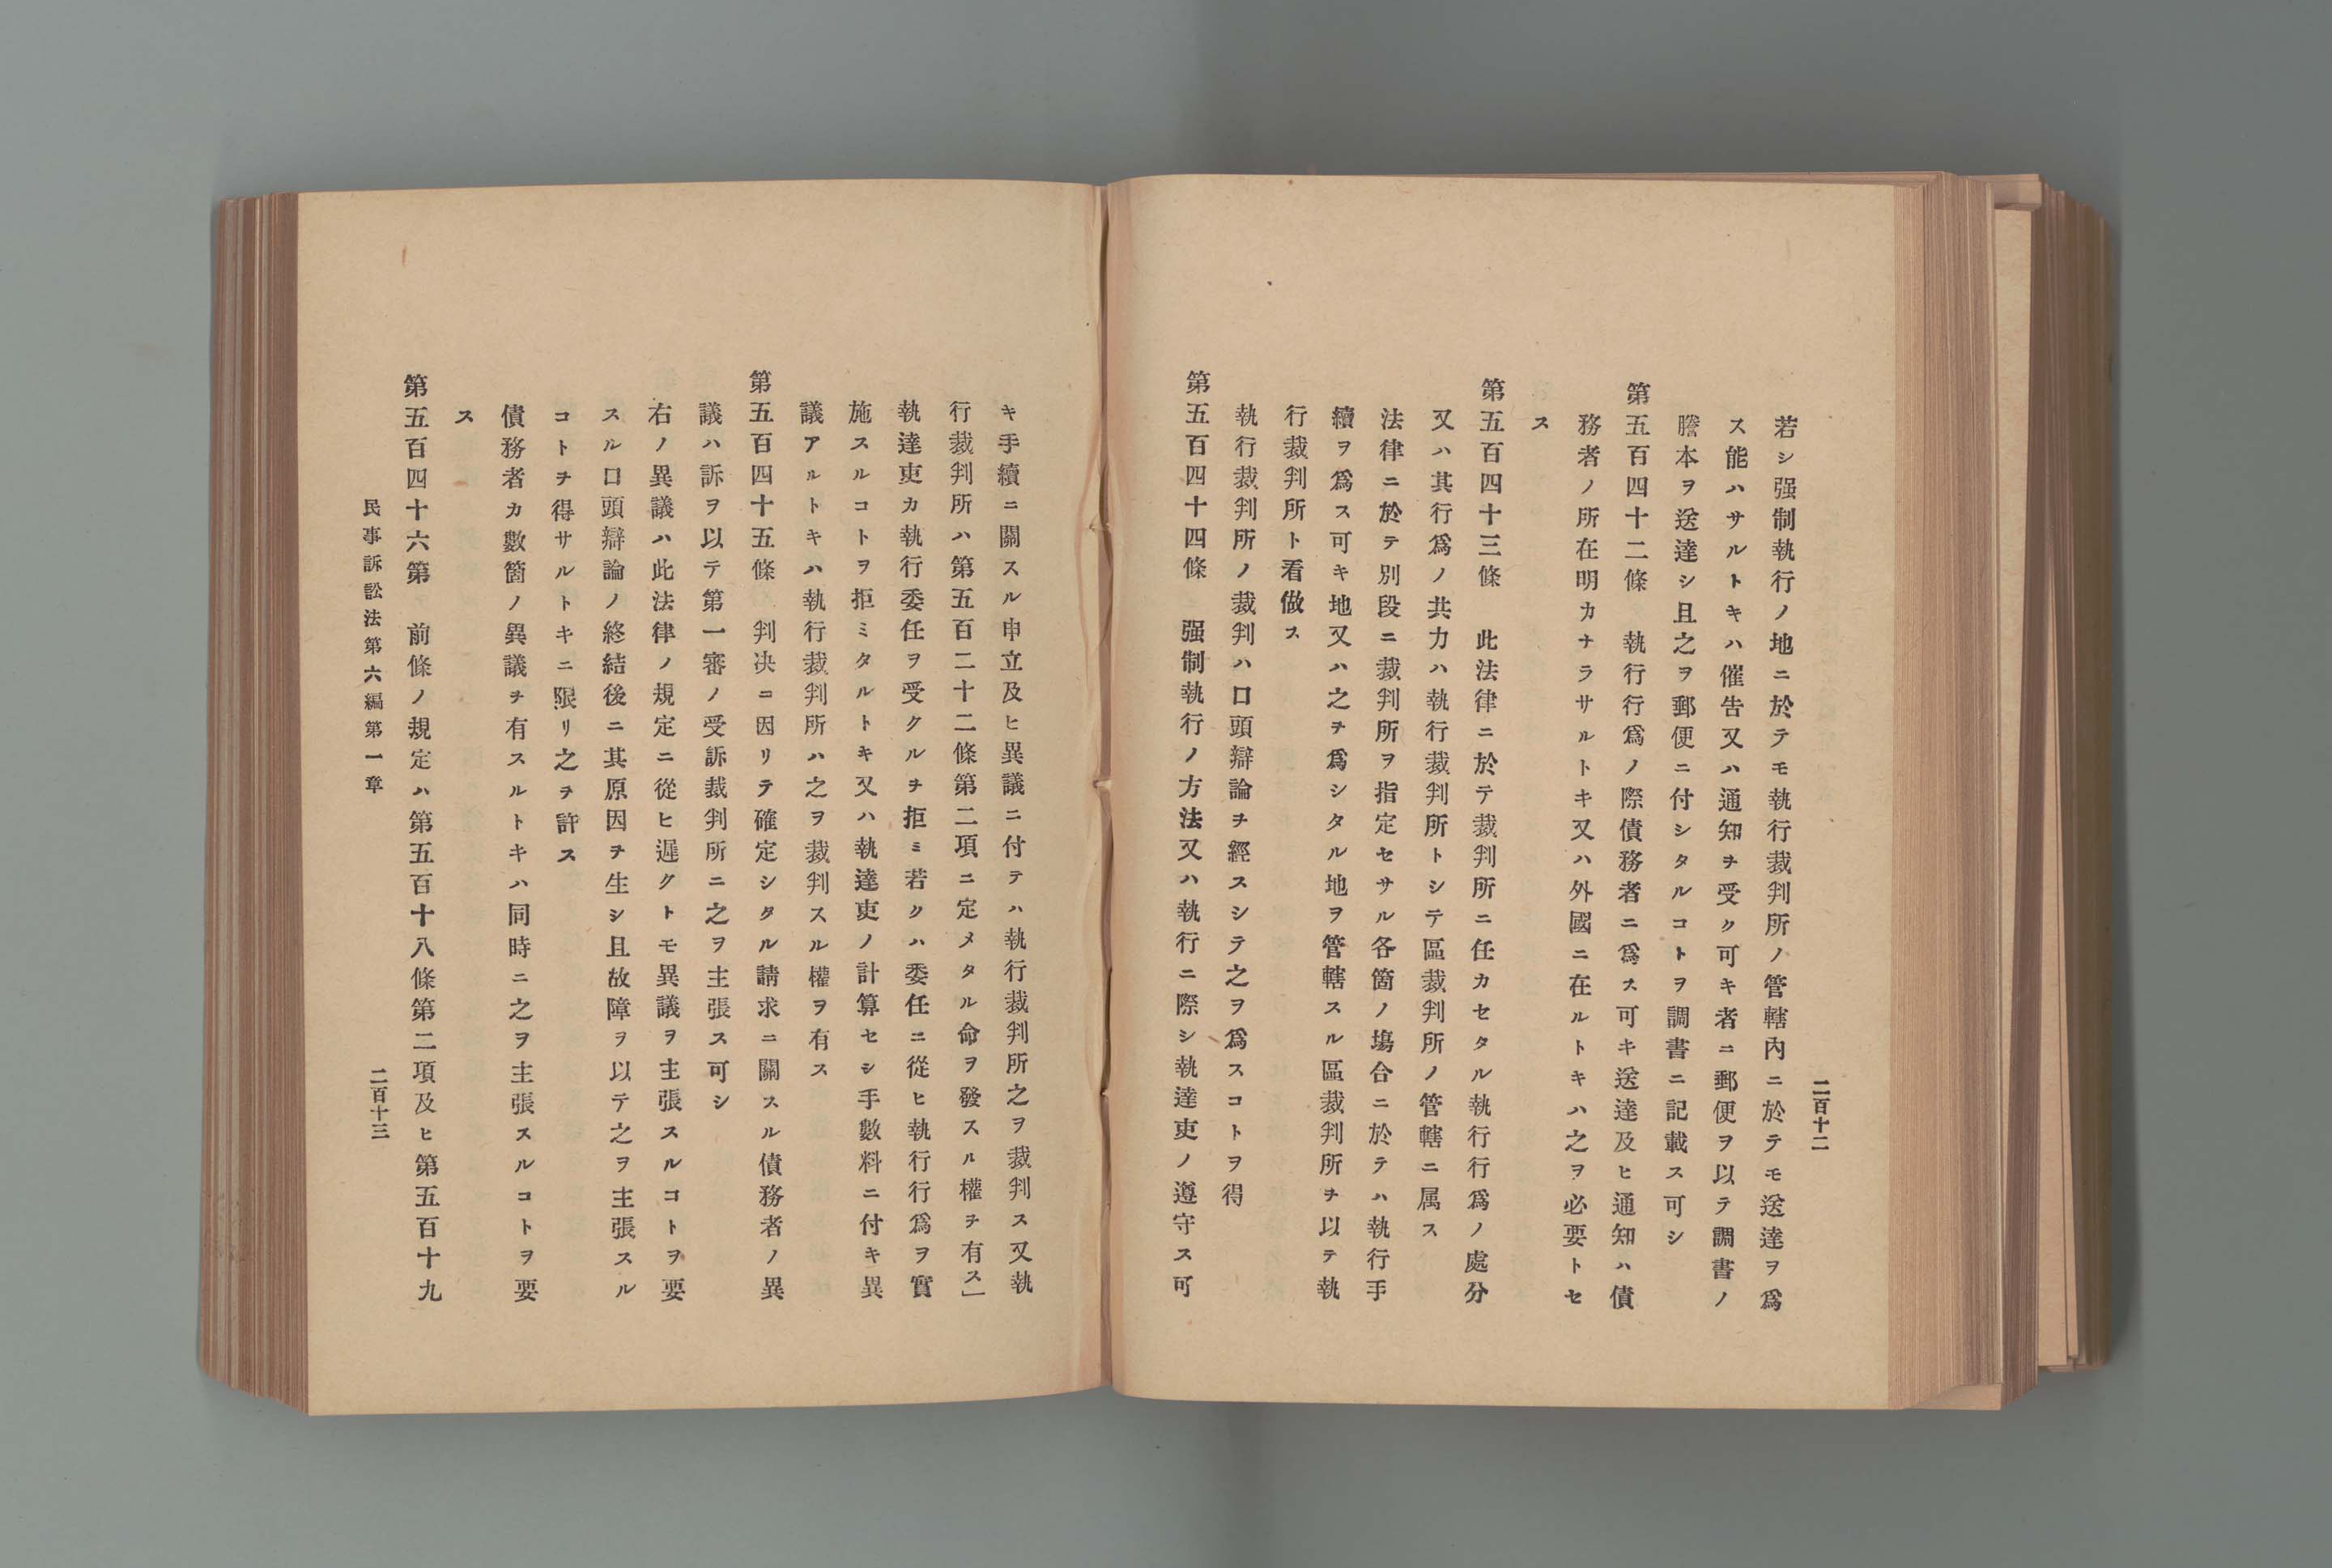 二百十二
若シ强制執行ノ地ニ於テモ執行裁判所ノ管轄內ニ於テモ送達ヲ爲
ス能ハサルトキハ催告又ハ通知ヲ受ク可キ者ニ郵便ヲ以テ調書ノ
謄本ヲ送達シ且之ヲ郵便ニ付シタルコトヲ調書ニ記載ス可シ
第五百四十二條　執行行爲ノ際債務者ニ爲ス可キ送達及ヒ通知ハ債
務者ノ所在明カナラサルトキ又ハ外國ニ在ルトキハ之ヲ必要トセ
ス
第五百四十三條　此法律ニ於テ裁判所ニ任カセタル執行行爲ノ處分
又ハ其行爲ノ共力ハ執行裁判所トシテ區裁判所ノ管轄ニ属ス
法律ニ於テ別段ニ裁判所ヲ指定セサル各箇ノ塲合ニ於テハ執行手
續ヲ爲ス可キ地又ハ之ヲ爲シタル地ヲ管轄スル區裁判所ヲ以テ執
行裁判所ト看做ス
執行裁判所ノ裁判ハ口頭辯論ヲ經スシテ之ヲ爲スコトヲ得
第五百四十四條　强制執行ノ方法又ハ執行ニ際シ執達吏ノ遵守ス可
キ手續ニ關スル申立及ヒ異議ニ付テハ執行裁判所之ヲ裁判ス又執
行裁判所ハ第五百二十二條第二項ニ定メタル命ヲ發スル權ヲ有ス」
執達吏カ執行委任ヲ受クルヲ拒ミ若クハ委任ニ從ヒ執行行爲ヲ實
施スルコトヲ拒ミタルトキ又ハ執達吏ノ計算セシ手數料ニ付キ異
議アルトキハ執行裁判所ハ之ヲ裁判スル權ヲ有ス
第五百四十五條　判决ニ因リテ確定シタル請求ニ關スル債務者ノ異
議ハ訴ヲ以テ第一審ノ受訴裁判所ニ之ヲ主張ス可シ
右ノ異議ハ此法律ノ規定ニ從ヒ遲クトモ異議ヲ主張スルコトヲ要
スル口頭辯論ノ終結後ニ其原因ヲ生シ且故障ヲ以テ之ヲ主張スル
コトヲ得サルトキニ限リ之ヲ許ス
債務者カ數箇ノ異議ヲ有スルトキハ同時ニ之ヲ主張スルコトヲ要
ス
第五百四十六第　前條ノ規定ハ第五百十八條第二項及ヒ第五百十九
民事訴訟法第六編第一章
二百十三